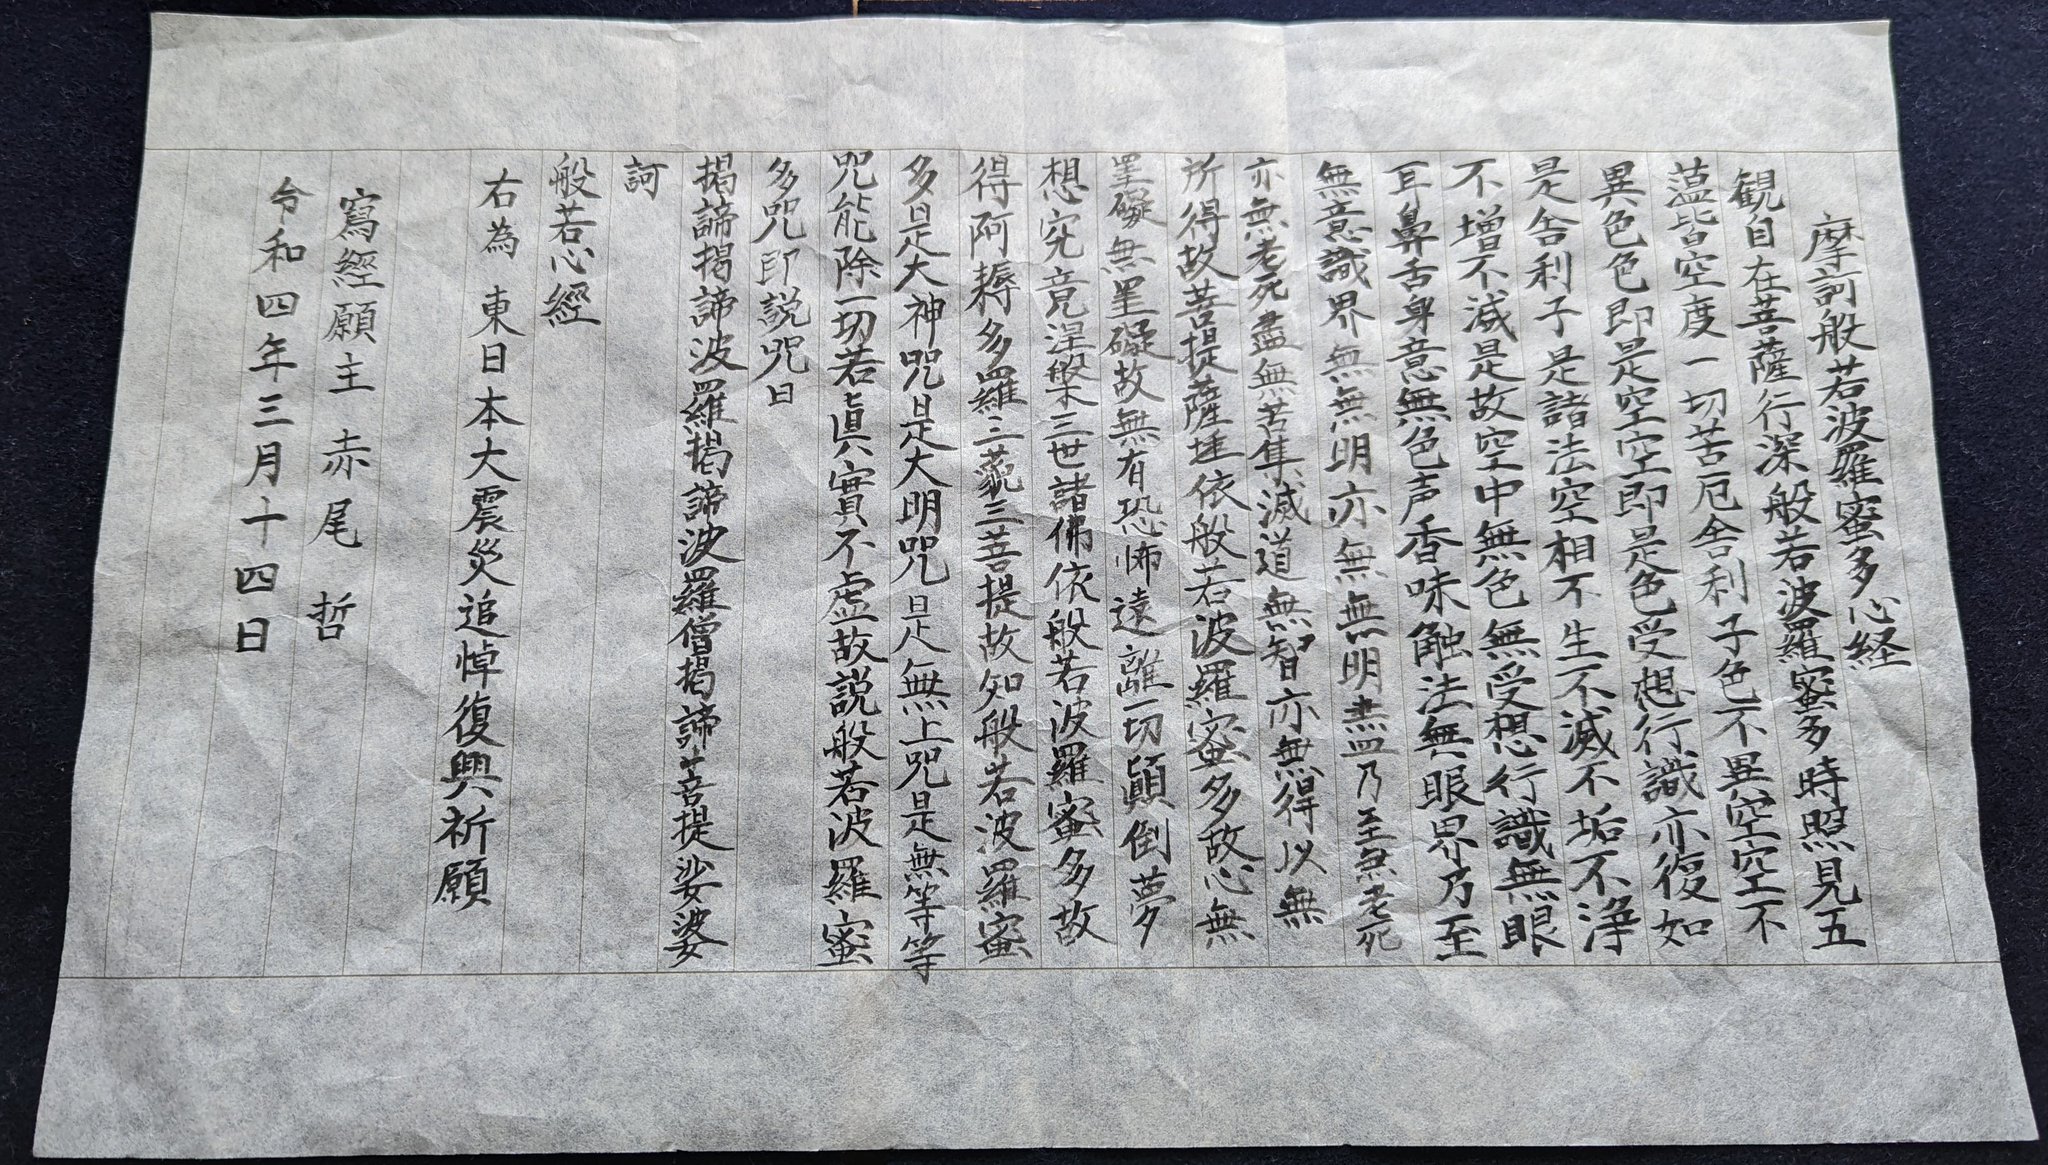 摩訶般若波羅蜜多心経
観自在菩薩行深般若波羅蜜多時照見五
蕰皆空度一切苦厄舎利子色不異空空不
異色色即是空空即是色受想行識亦復如
是舎利子是諸法空相不生不滅不垢不浄
不増不減是故空中無色無受想行識無眼
耳鼻舌身意無色声香味触法無眼界乃至
無意識界無無明亦無無明盡乃至無老死
亦無老死盡無苦集滅道無智亦無得以無
所得故菩提薩埵依般若波羅蜜多故心無
罣礙無罣礙故無有恐怖遠離一切顛倒夢
想究竟涅槃三世諸佛依般若波羅蜜多故
得阿耨多羅三藐三菩提故知般若波羅蜜
多是大神咒是大明咒是無上咒是無等等
咒能除一切若眞實不虚故説般若波羅蜜
多咒即説咒曰
掲諦掲諦波羅掲諦波羅僧掲諦菩提娑婆
訶
般若心經
右為 東日本大震災追悼復興祈願
寫經願主 赤尾 哲
令和四年三月十四日